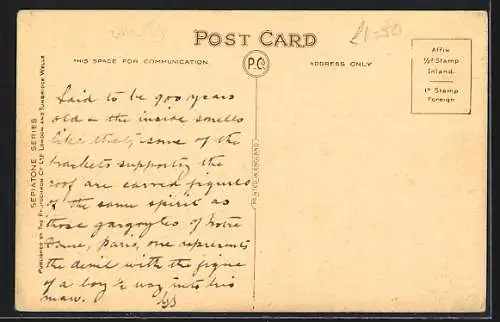 £1-50
POST CARD
THIS SPACE FOR COMMUNICATION.
P.C.
ADDRESS ONLY
Affix
½d Stamp
Inland.
1d Stamp
Foreign
Said to be 900 years
old & the inside smells
like that, some of the
brackets supporting the
roof are carved figures
of the same spirit as
those gargoyles of Notre
Dame, Paris, one represents
the devil with the figure
of a boy ½ way into his
maw.
SEPIATONE SERIES
PUBLISHED BY THE PHOTOCHROM CO LTD LONDON AND TUNBRIDGE WELLS
PRINTED IN ENGLAND